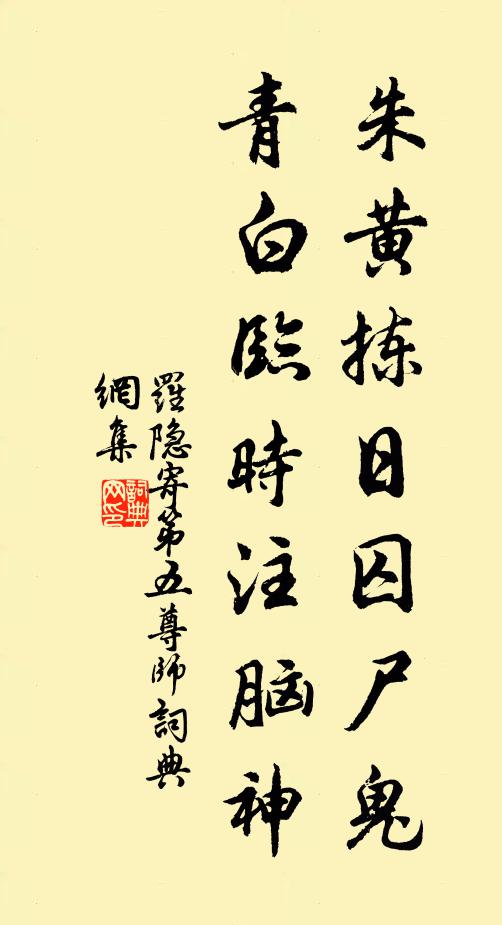 朱黄拣日囚尸鬼
青白臨時注脑神
羅隐寄第五尊師詞典
網集
詞典
网印